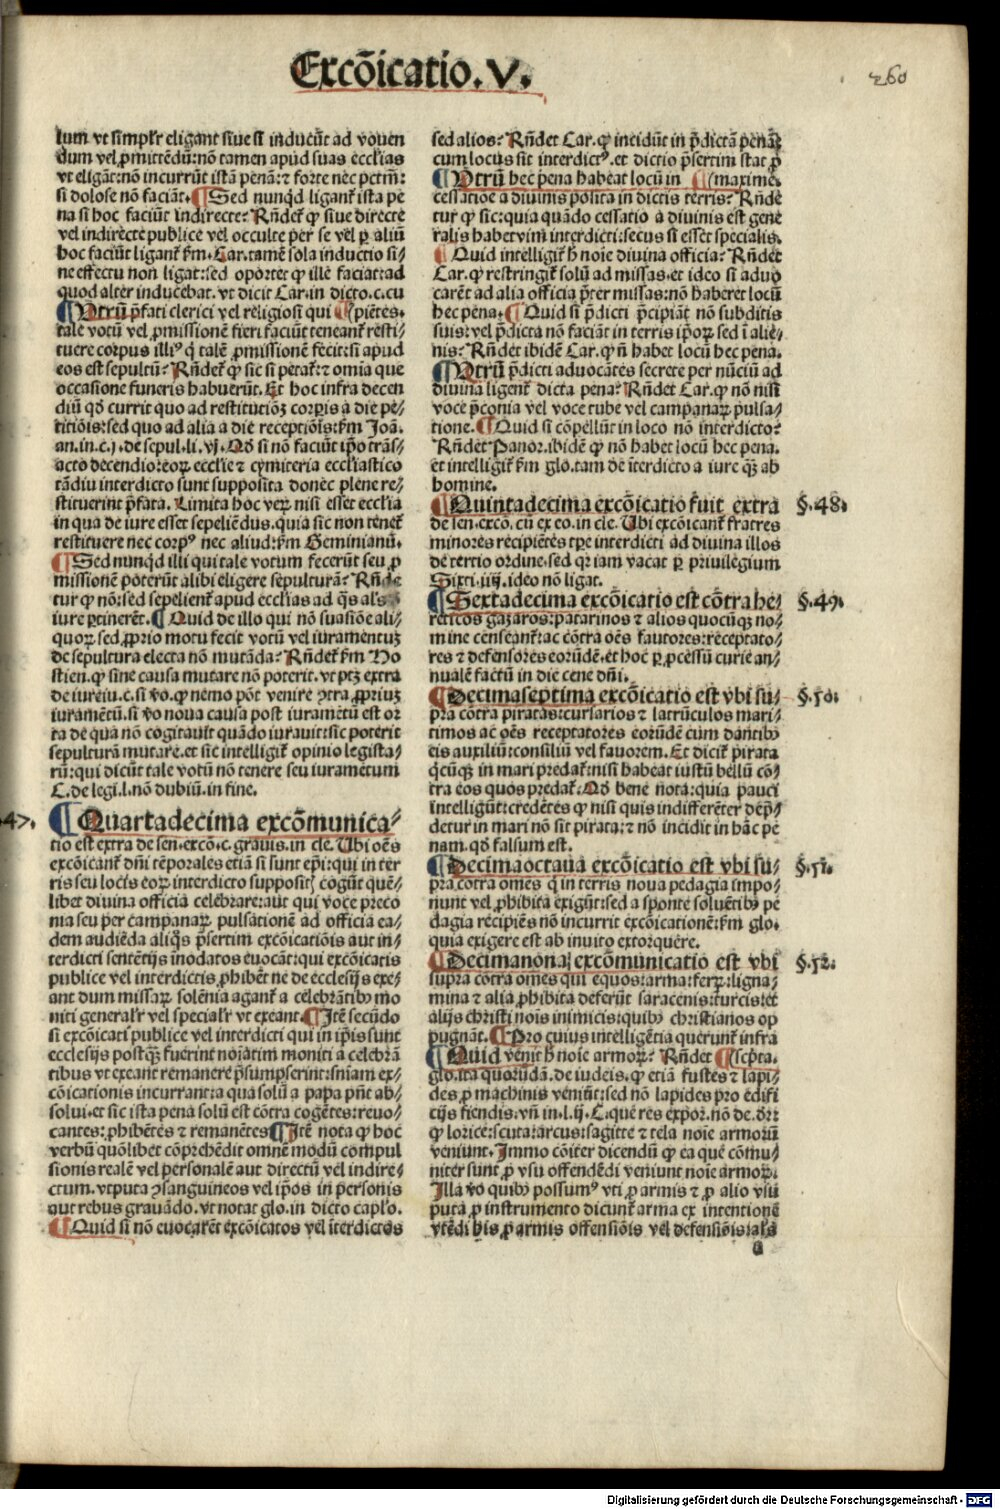 Excōicatio. V.
260
lum vt simplr̄ eligant siue si inducūt ad vouen
dum vel ꝓmittēdū: nō tamen apud suas ecclīas
vt eligāt: nō incurrūt istā penā: ⁊ forte nec pctm̄:
si dolose nō faciāt. ¶ Sed nunqd ligant̄ ista pe
na si hoc faciūt indirecte? Rn̄det̄ ꝙ siue directe
vel indirecte publice vel occulte per se vel ꝑ aliū
hoc faciūt ligant̄ fm̄. Car. tamē sola inductio si⸗
ne effectu non ligat: sed oportet ꝙ ille faciat: ad
quod alter inducebat. vt dicit Car. in dicto. c. cu
¶ Utrū p̄fati clerici vel religiosi qui ¶ piētes.
tale votū vel ꝓmissionē fieri faciūt teneant̄ resti⸗
tuere corpus illiꝰ q̄ talē ꝓmissionē fecit: si apud
eos est sepultū? Rn̄det̄ ꝙ sic si petat̄: ⁊ omia que
occasione funeris habuerūt. Et hoc infra decen
diū qd̄ currit quo ad restitutiōꝫ corꝑis a die pe⸗
titiōis: sed quo ad alia a die receptiōis: fm̄ Joā.
an. in. c. j. de sepul. li. vj. Qd̄ si nō faciūt ip̄o trās⸗
acto decendio: eoꝝ ecclīe ⁊ cymiteria ecclīastico
tādiu interdicto sunt supposita donec plene re⸗
stituerint p̄fata. Limita hoc veꝝ nisi esset ecclīa
in qua de iure esset sepeliēdus. quia sic non tenet̄
restituere nec corpꝰ nec aliud: fm̄ Geminianū.
¶ Sed nunqd illi qui tale votum fecerūt seu ꝓ
missionē poterūt alibi eligere sepulturā? Rn̄de
tur ꝙ nō: sed sepelient̄ apud ecclīas ad q̄s als̄
iure ꝑtinerēt. ¶ Quid de illo qui nō suasiōe ali⸗
quoꝝ sed ꝓprio motu fecit votū vel iuramentuꝫ
de sepultura electa nō mutāda? Rn̄det̄ fm̄ Ho
stien. ꝙ sine causa mutare nō poterit. vt ptꝫ extra
de iureiu. c. si v̄o. ꝙ nemo pōt venire ꝯtra ꝓpriuꝫ
iuramētū. si v̄o noua causa post iuramētū est or
ta de qua nō cogitauit quādo iurauit: sic poterit
sepulturā mutare. et sic intelligit̄ opinio legista⸗
rū: qui dicūt tale votū nō tenere seu iurametum
C. de legi. l. nō dubiū. in fine.
47.
¶ Quartadecima excōmunica⸗
tio est extra de sen. excō. c. grauis. in cle. Ubi oēs
excōicant̄ dn̄i tēporales etiā si sunt ep̄i: qui in ter
ris seu locis eoꝝ interdicto suppositꝭ cogūt quē⸗
libet diuina officia celebrare: aut qui voce preco
nia seu per campanaꝝ pulsationē ad officia ea⸗
dem audiēda aliq̄s p̄sertim excōicatiōis aut in⸗
terdicti sentētijs īnodatos euocāt: qui excōicatis
publice vel interdictis ꝓhibēt ne de ecclesijs exe⸗
ant dum missaꝝ solēnia agant̄ a celebrātibꝰ mo
niti generalr̄ vel specialr̄ vt exeant. ¶ Itē secūdo
si excōicati publice vel interdicti qui in ip̄is sunt
ecclesijs postq̄ꝫ fuerint noīatim moniti a celebrā
tibus vt exeant remanere p̄sumpserint: sn̄iam ex⸗
cōicationis incurrant: a qua solū a papa pn̄t ab⸗
solui. et sic ista pena solū est cōtra cogētes: reuo⸗
cantes: ꝓhibētes ⁊ remanētes ¶ Itē nota ꝙ hoc
verbū quōlibet cōprehēdit omnē modū compul
sionis realē vel personalē aut directū vel indire⸗
ctum. vtputa ꝯsanguineos vel ip̄os in personis
aut rebus grauādo. vt notat glo. in dicto caplo.
¶ Quid si nō euocarēt excōicatos vel īterdictos
sed alios? Rn̄det Car. ꝙ incidūt in p̄dictā penā
cum locus sit interdictꝰ. et dictio p̄sertim stat ꝓ
¶ Utrū hec pena habeat locū in ¶ maxime.
cessatiōe a diuinis posita in dictis terris? Rn̄de
tur ꝙ sic: quia quādo cessatio a diuinis est gene
ralis habet vim interdicti: secus si esset specialis.
¶ Quid intelligit̄ h̄ noīe diuina officia? Rn̄det
Car. ꝙ restringit̄ solū ad missas. et ideo si aduo
carēt ad alia officia p̄ter missas: nō haberet locū
hec pena. ¶ Quid si p̄dicti p̄cipiāt nō subditis
suis: vel p̄dicta nō faciāt in terris ip̄oꝝ sed ī alie⸗
nis? Rn̄det ibidē Car. ꝙ n̄ habet locū hec pena.
¶ Utrū p̄dicti aduocātes secrete per nūciū ad
diuina ligent̄ dicta pena? Rn̄det Car. ꝙ nō nisi
voce p̄conia vel voce tube vel campanaꝝ pulsa⸗
tione. ¶ Quid si cōpellūt in loco nō interdicto?
Rn̄det Panor. ibidē ꝙ nō habet locū hec pena.
et intelligit̄ fm̄ glo. tam de īterdicto a iure q̄ꝫ ab
homine.
¶ Quintadecima excōicatio fuit extra
§. 48.
de sen. excō. cū ex eo. in cle. Ubi excōicant̄ fratres
minores recipiētes tp̄e interdicti ad diuina illos
de tertio ordine. sed qr̄ iam vacat ꝑ priuilegium
Sixti. iiij. ideo nō ligat.
¶ Sextadecima excōicatio est cōtra he⸗
§. 49.
reticos gazaros: patarinos ⁊ alios quocūqꝫ no⸗
mine censeant̄: ac cōtra oēs fautores: receptato⸗
res ⁊ defensores eorūdē. et hoc ꝑ ꝓcessū curie an⸗
nualē factū in die cene dn̄i.
¶ Decimaseptima excōicatio est vbi su⸗
§. 50.
pra cōtra piratas: cursarios ⁊ latrūculos mari⸗
timos ac oēs receptatores eorūdē cum dantibꝰ
eis auxiliū: consiliū vel fauorem. Et dicit̄ pirata
q̄cūqꝫ in mari predat̄: nisi habeat iustū bellū cō⸗
tra eos quos predat̄. Qd̄ bene nota: quia pauci
intelligūt: credētes ꝙ nisi quis indifferēter dep̄⸗
detur in mari nō sit pirata: ⁊ nō incidit in hāc pe
nam. qd̄ falsum est.
¶ Decimaoctaua excōicatio est vbi su⸗
§. 51.
pra cōtra omēs q̄ in terris noua pedagia impo⸗
nunt vel ꝓhibita exigūt: sed a sponte soluētibꝰ pe
dagia recipiēs nō incurrit excōicationē: fm̄ glo.
quia exigere est ab inuito extorquere.
¶ Decimanona excōmunicatio est vbi
§. 52.
supra cōtra omēs qui equos: arma: ferꝝ: ligna⸗
mina ⁊ alia ꝓhibita deferūt saracenis: turcis: et
alijs christi noīs inimicis: quibꝰ christianos op
pugnāt. ¶ Pro cuius intelligētia querunt̄ infra
¶ Quid venit h̄ noīe armoꝝ? Rn̄det ¶ scp̄ta.
glo. ita quorūdā. de iudeis. ꝙ etiā fustes ⁊ lapi⸗
des ꝓ machinis veniūt: sed nō lapides pro edifi
cijs fiendis. vn̄ in. l. ij. C. que res expor. nō de. dr̄:
ꝙ lorice: scuta: arcus: sagitte ⁊ tela noīe armorū
veniunt. Immo cōiter dicendū ꝙ ea que cōmu⸗
niter sunt ꝓ vsu offendēdi veniunt noīe armoꝝ.
Illa v̄o quibꝰ possumꝰ vti ꝓ armis ⁊ ꝓ alio vsu
puta ꝓ instrumento dicunt̄ arma ex intentione
vtēdi his ꝓ armis offensiōis vel defensiōis: als̄
Digitalisierung gefördert durch die Deutsche Forschungsgemeinschaft - DFG